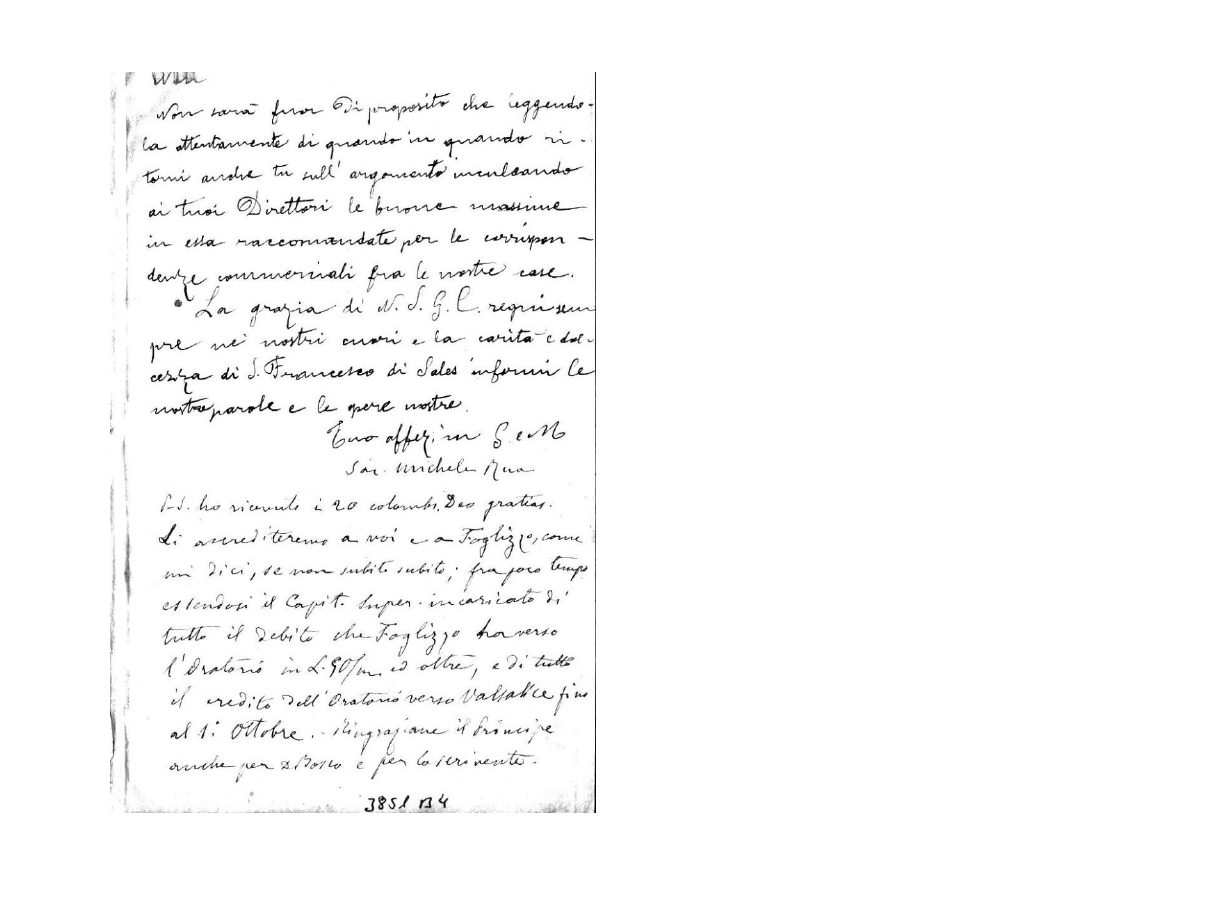 Non sarà fuor di proposito che leggendo-
la attentamente di quando in quando ri-
torni anche tu sull' argomento inculcando
ai tuoi Direttori le buone massime
in essa raccomandate per le corrispon-
denze commerciali fra le nostre case.
La grazia di N. S. G. C. regni sem
pre ne' nostri cuori e la carità e dol-
cezza di S. Francesco di Sales informi le
nostre parole e le opere nostre.
Tuo affez.mo in G. e M
Sac. Michele Rua
P.S. ho ricevuto i 20 colombi. Deo gratias.
Li accrediteremo a voi e a Foglizzo, come
mi dici, se non subito subito; fra poco tempo
essendosi il Capit. Super. incaricato di
tutto il debito che Foglizzo ha verso
l'Oratorio in L. 90/m ed oltre, e di tutto
il credito dell'Oratorio verso Valsalice fino
al 1: Ottobre. - Ringraziane il Principe
anche per D. Bosco e per lo scrivente.
3851 B4